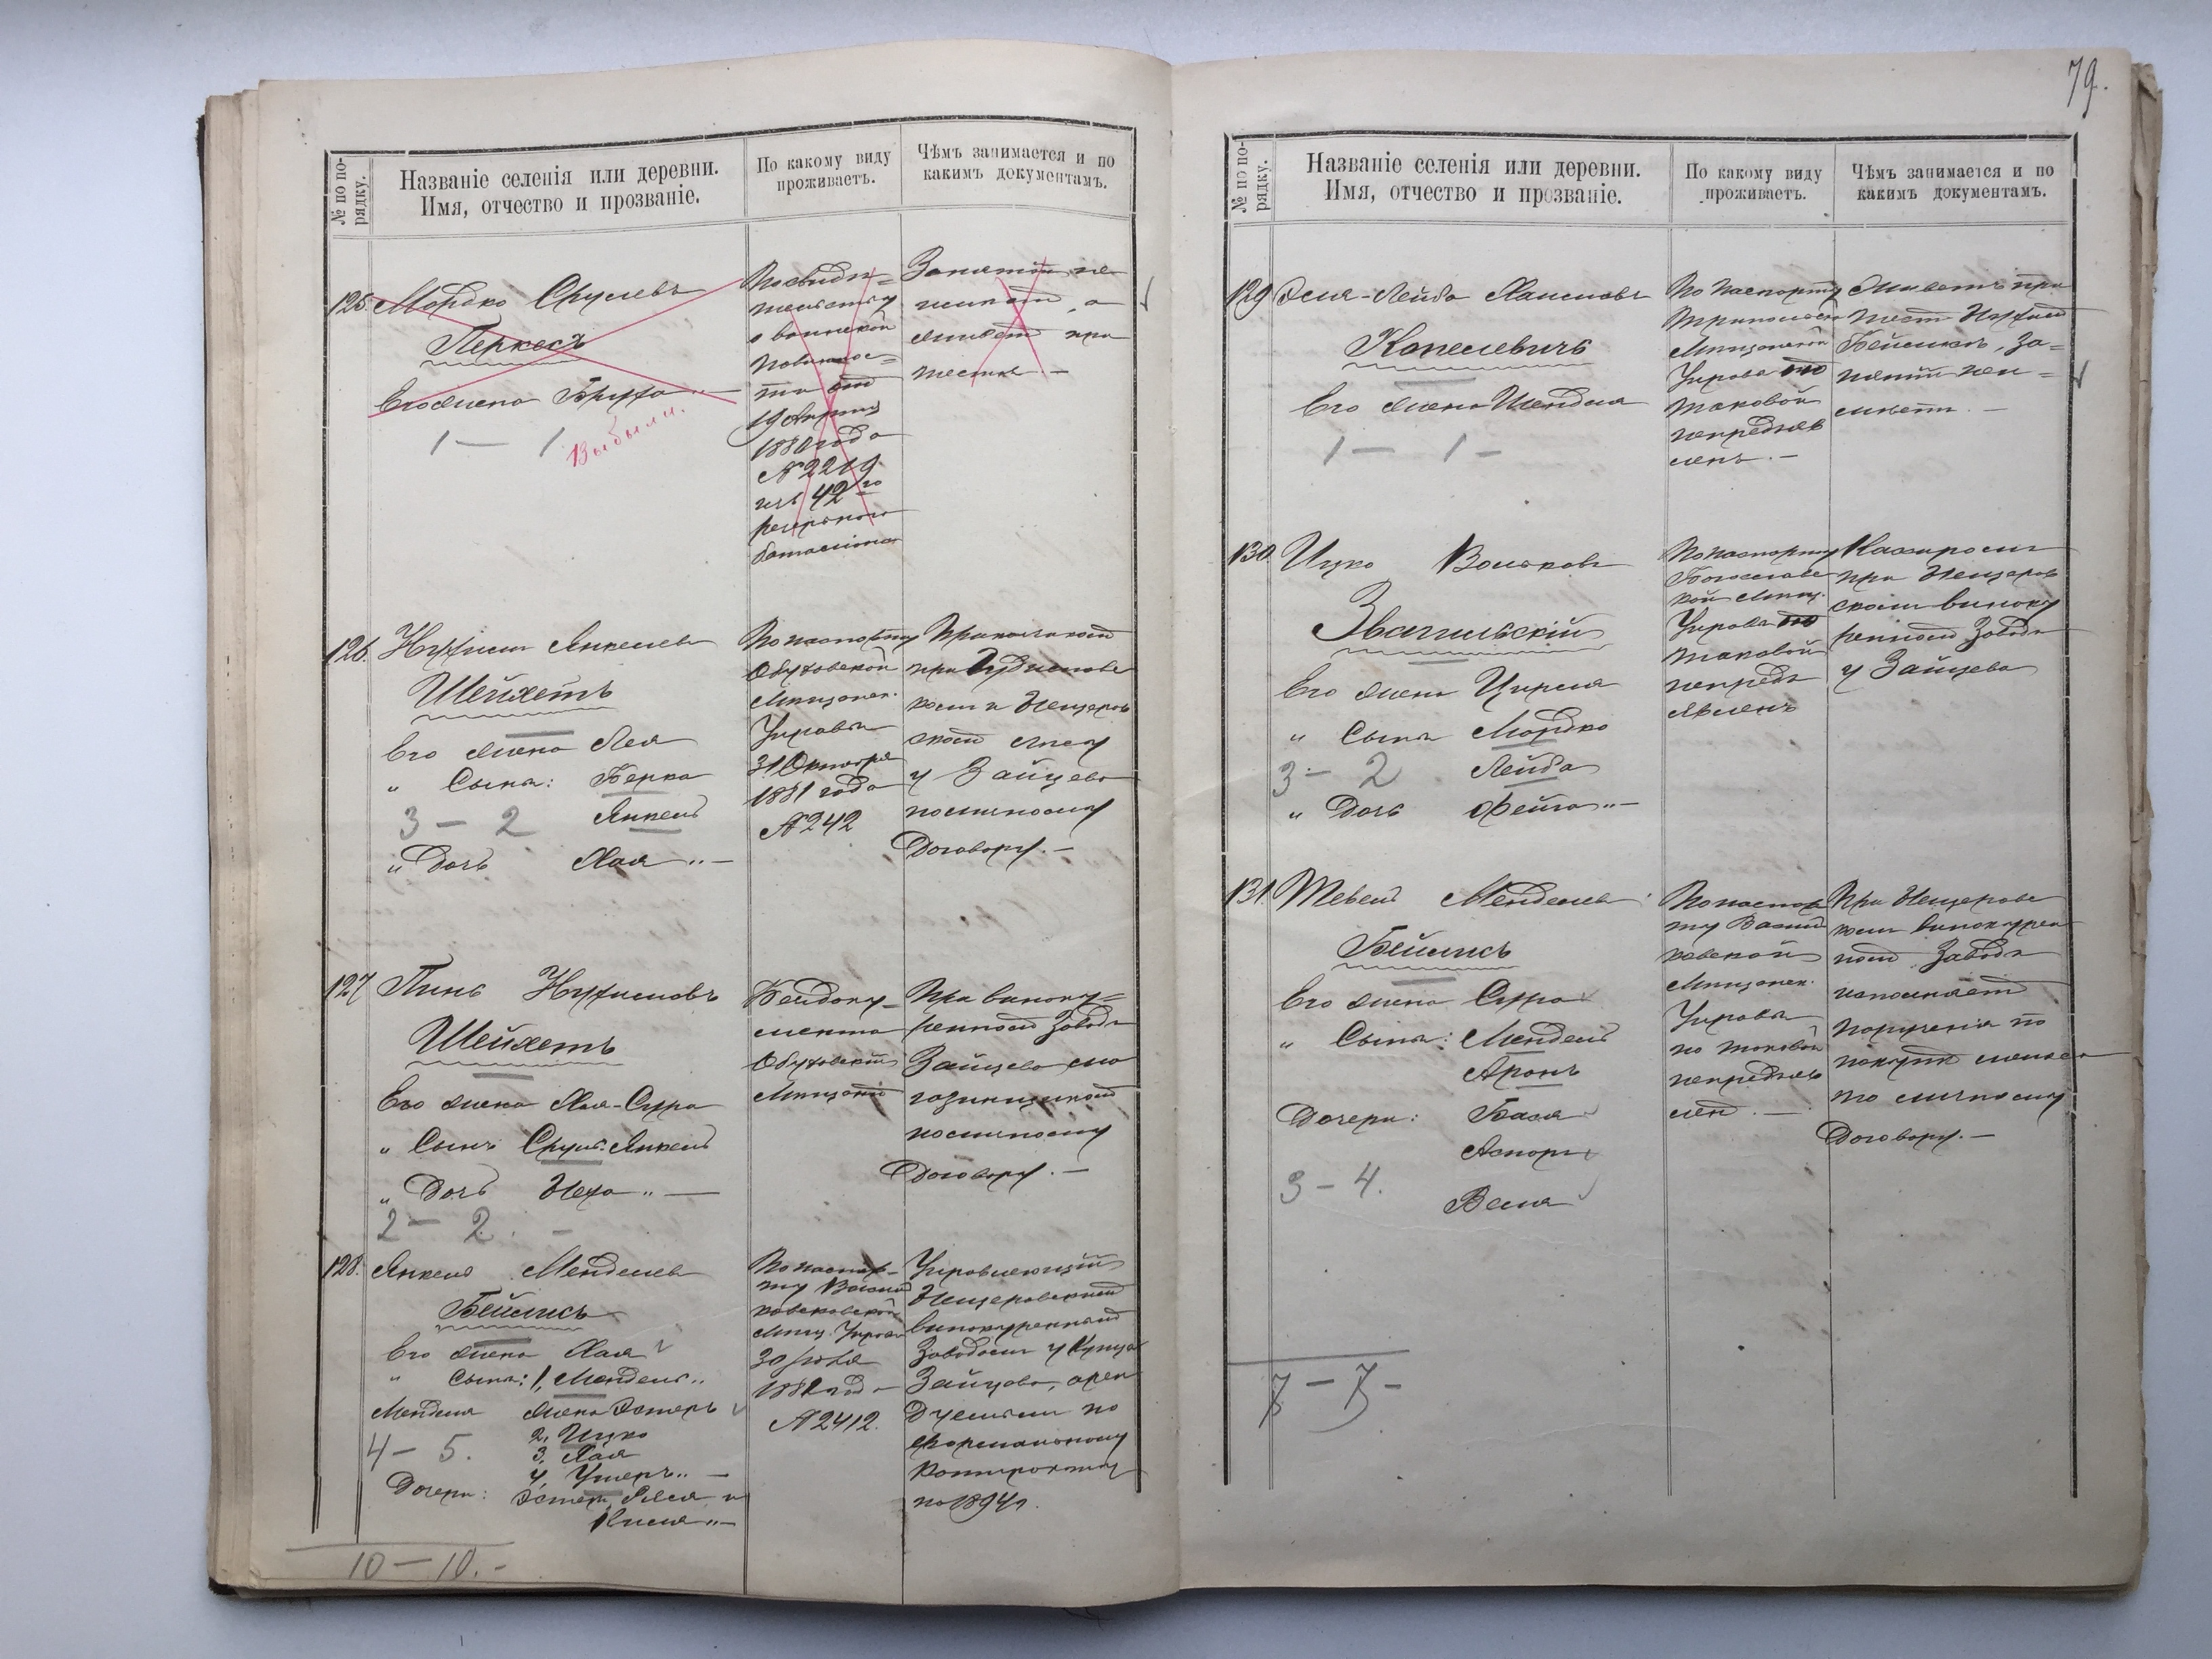 79.
№ по по-
рядку.
Названіе селенія или деревни.
Имя, отчество и прозваніе.
По какому виду
проживаетъ.
Чѣмъ занимается и по
какимъ документамъ.
125. Мордко Срулевъ
Перкесъ
Его жена Бруха "—
1 — 1
Выбыли.
По свидѣ=
тельству
о воинской
повинно
сти отъ
19 Апрѣля
1880 года
№ 2219
изъ 42го
резервнаго
баталіона
Занятій не
имѣетъ, а
живетъ при
тестѣ —
126. Нухимъ Янкелевъ
Шейхетъ
Его жена Лея
" Сыны: Берко
3 — 2 Янкель
" Дочь Хая "—
По паспорту
Обуховской
Мѣщанск.
Управы
31 Октября
1881 года
№ 242
Прикащикомъ
при
комъ и Нещеров
скомъ лѣсу
у Зайцева
по личному
Договору. —
127 Пинь Нухимовъ
Шейхетъ
Его жена Хая-Сура
" Сынъ Сруль-Янкель
" Дочь Неха "—
2 — 2. —
Бездоку-
мента
Обуховскій
Мѣщанинъ
При виноку=
ренномъ Заводѣ
Зайцева ма
газинщикомъ
по личному
Договору. —
128. Янкель Менделевъ
Бейлисъ
Его жена Хая
" Сыны: 1, Мендель "
Менделя жена Эстеръ
2, Ицко
4 — 5.
3, Хая
4, Ушеръ " —
Дочери: Эстеръ, Хася и
10 — 10. —
По паспор-
ту Василь
ковской
Мѣщ. Управы
30 Іюля
188 года
№ 2412.
Управляющій
Нещеровскимъ
винокуреннымъ
Заводомъ у Купца
Зайцева, арен
дуемымъ по
формальному
контракту
по 1894 г.
№ по по-
рядку.
Названіе селенія или деревни.
Имя, отчество и прозваніе.
По какому виду
проживаетъ.
Чѣмъ занимается и по
какимъ документамъ.
129 Эля-Лейба Хаимовъ
Копелевичъ
Его жена Шендля
1 — 1 —
По паспорту
Трипольской
Мѣщанской
Управы но
таковой
непредъяв
ленъ. —
Живетъ при
тестѣ Нухимѣ
Бейлисѣ, за=
нятій неи=
мѣетъ. —
130. Ицко Вольковъ
Звагильскій
Его жена Цирля
" Сыны Мордко
3 — 2 Лейба
" Дочь Фейга "—
По паспорту
Богуславс
кой Мѣщ.
Управы но
таковой
непредъ
явленъ
Кассиромъ
при Нещеров
скомъ виноку
ренномъ Заводѣ
у Зайцева
131. Тевель Менделевъ
Бейлисъ
Его жена Сура
" Сыны: Мендель
Аронъ
Дочери: Бася
3 — 4.
Веля
По паспор
ту Василь
ковской
Мѣщанск.
Управы
но таковой
непредъяв
ленъ. —
При Нещеровс
комъ винокурен
номъ Заводѣ
исполняетъ
порученія по
покупкѣ
по личному
Договору. —
7 — 7 —